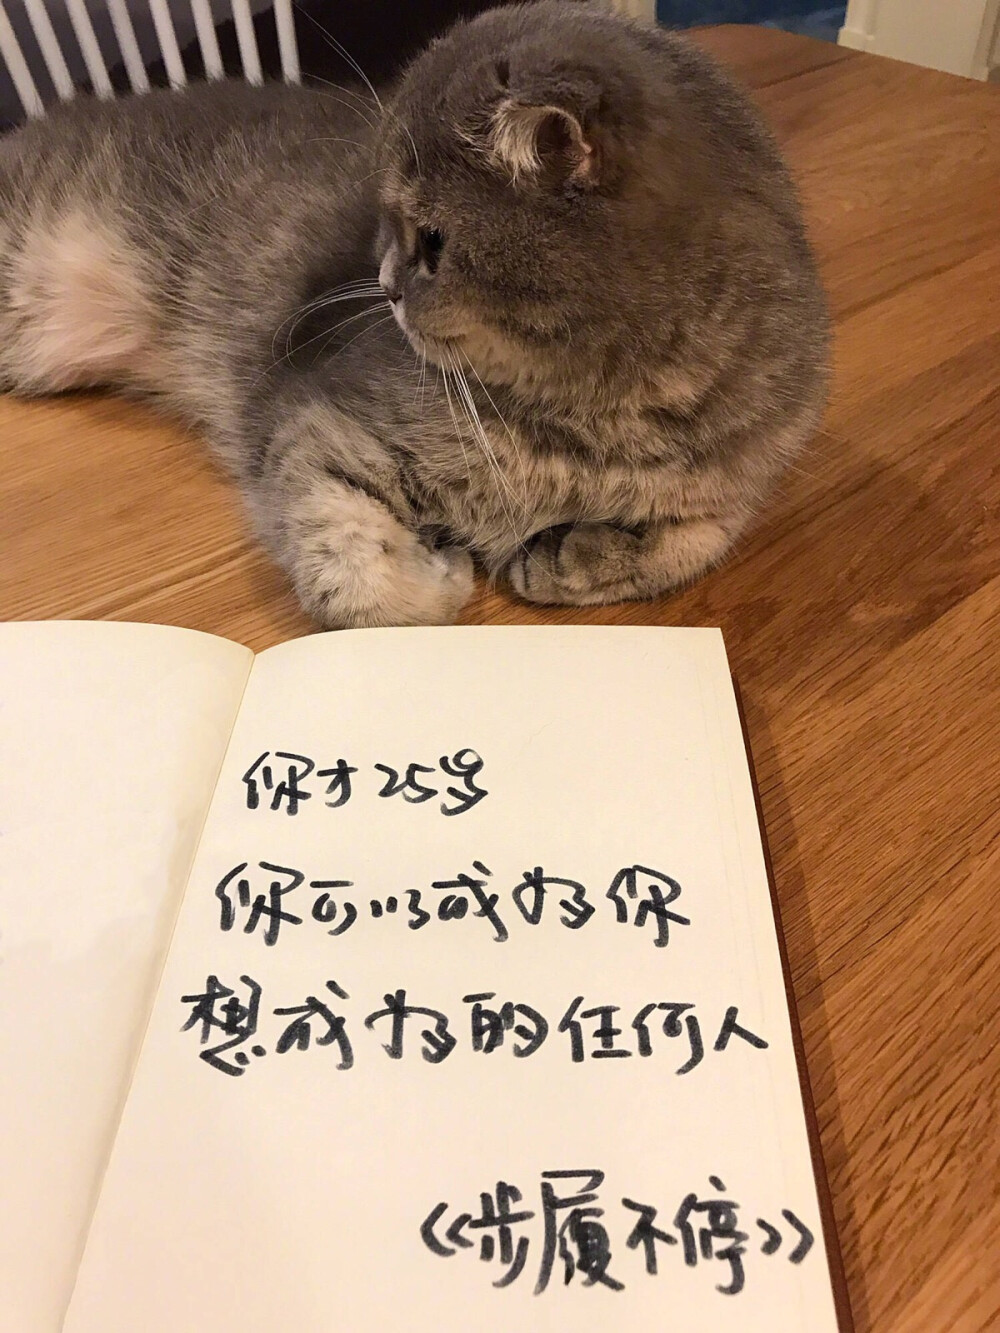 你才25岁
你可以成为你
想成为的任何人
《步履不停》